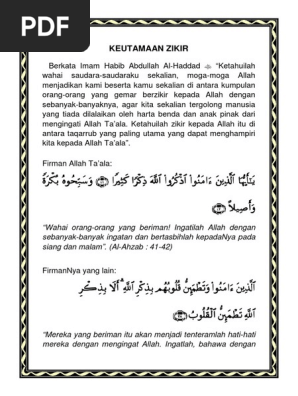 PDF
KEUTAMAAN ZIKIR
Berkata Imam Habib Abdullah Al-Haddad "Ketahuilah
wahai saudara-saudaraku sekalian, moga-moga Allah
menjadikan kami beserta kamu sekalian di antara kumpulan
orang-orang yang gemar berzikir kepada Allah dengan
sebanyak-banyaknya, agar kita sekalian tergolong manusia
yang tiada dilalaikan oleh harta benda dan anak pinak dari
mengingati Allah Ta'ala. Ketahuilah zikir kepada Allah itu di
antara taqarrub yang paling utama yang dapat menghampiri
kita kepada Allah Ta'ala".
Firman Allah Ta'ala:
يَـٰٓأَيُّهَا ٱلَّذِينَ ءَامَنُوا۟ ٱذْكُرُوا۟ ٱللَّهَ ذِكْرًا كَثِيرًا ﴿٤١﴾ وَسَبِّحُوهُ بُكْرَةً
وَأَصِيلاً ﴿٤٢﴾
"Wahai orang-orang yang beriman! Ingatilah Allah dengan
sebanyak-banyak ingatan dan bertasbihlah kepadaNya pada
siang dan malam". (Al-Ahzab : 41-42)
FirmanNya yang lain:
ٱلَّذِينَ ءَامَنُوا۟ وَتَطْمَئِنُّ قُلُوبُهُم بِذِكْرِ ٱللَّهِ ۗ أَلَا بِذِكْرِ
ٱللَّهِ تَطْمَئِنُّ ٱلْقُلُوبُ ﴿٢٨﴾
"Mereka yang beriman itu akan menjadi tenteramlah hati-hati
mereka dengan mengingat Allah. Ingatlah, bahawa dengan